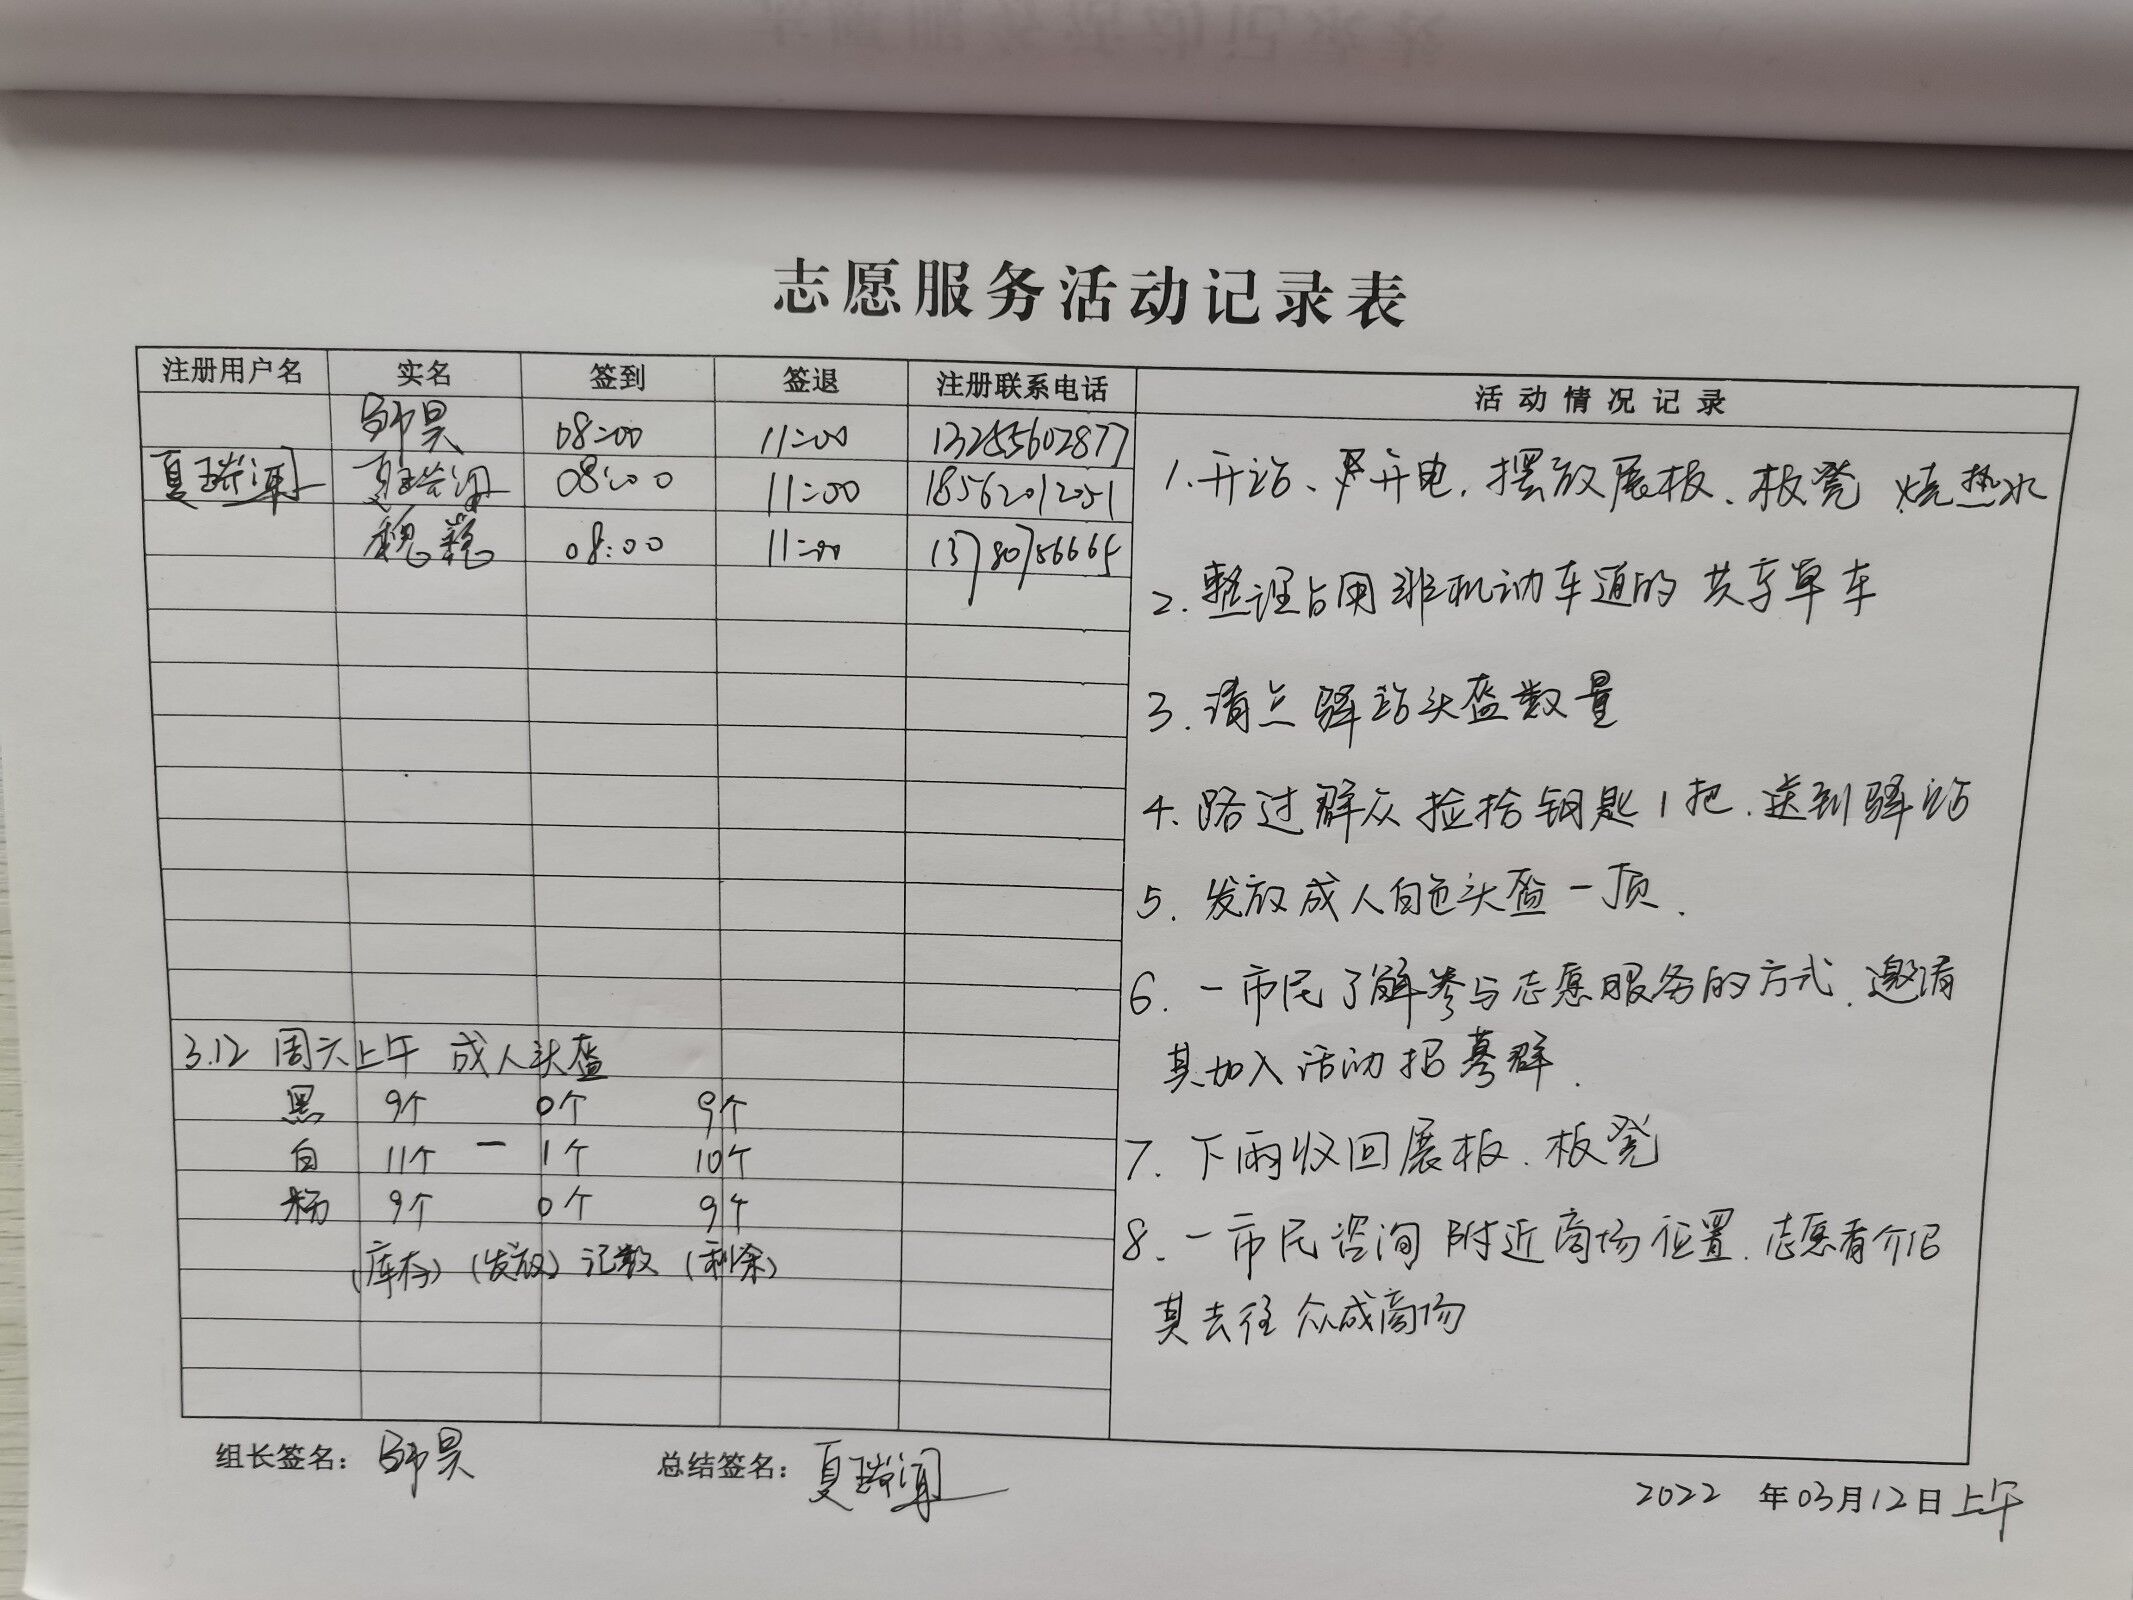 志愿服务活动记录表
注册用户名 实名 签到 签退 注册联系电话 活动情况记录
昊 08:00 11:00 13255602877
夏瑞 夏瑞 08:00 11:00 18562012051
魏 08:00 11:00 13780756665
1.开站、开电.摆放展板、板凳 烧热水
2.整理占用非机动车道的共享单车
3.清点驿站头盔数量
4.路过群众捡拾钥匙1把.送到驿站
5.发放成人白色头盔一顶.
6.一市民了解参与志愿服务的方式.邀请
其加入活动招募群.
7.下雨收回展板.板凳
8.一市民咨询附近商场位置.志愿者介绍
其去往众成商场
3.12 周六上午 成人头盔
黑 9个 0个 9个
白 11个 一 1个 10个
粉 9个 0个 9个
(库存) (发放) 记数 (剩余)
组长签名: 昊 总结签名: 夏瑞
2022 年03月12日上午